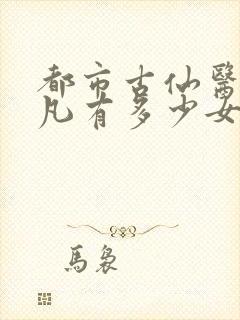 都市古仙醫
凡有多少女
馬裊